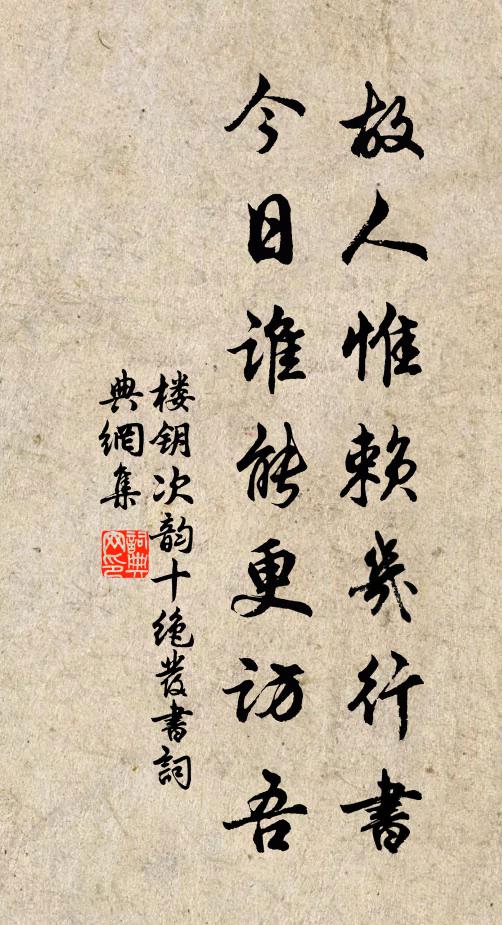 故人惟赖几行书
今日谁能更访吾
楼钥次韵十绝发书词
典網集
詞典網印